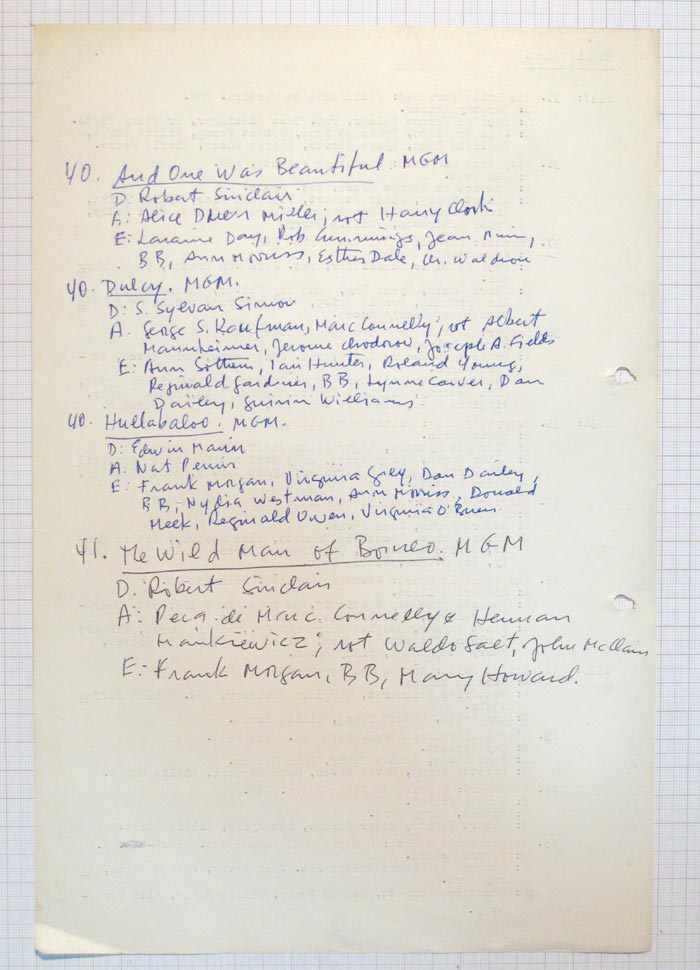 40. And One Was Beautiful. MGM
D. Robert Sinclair
A: Alice Duer Miller; rot Harry Clork
E: Laraine Day, Rob Cummings, Jean Muir,
BB, Ann Morriss, Esther Dale, Ch. Waldron
40. Dulcy. MGM.
D: S. Sylvan Simon
A. George S. Kaufman, Marc Connelly; rot Albert
Mannheimer, Jerome Chodorov, Joseph A. Fields
E: Ann Sothern, Ian Hunter, Roland Young,
Reginald Gardiner, BB, Lynne Carver, Dan
Dailey, Guinn Williams
40. Hullabaloo. MGM.
D: Edwin Marin
A: Nat Perrin
E: Frank Morgan, Virginia Grey, Dan Dailey,
BB, Nydia Westman, Ann Morriss, Donald
Meek, Reginald Owen, Virginia O'Brien
41. The Wild Man of Borneo. MGM
D. Robert Sinclair
A: Peça de Marc Connelly e Herman
Mankiewicz; rot Waldo Salt, John McClain
E: Frank Morgan, BB, Mary Howard.